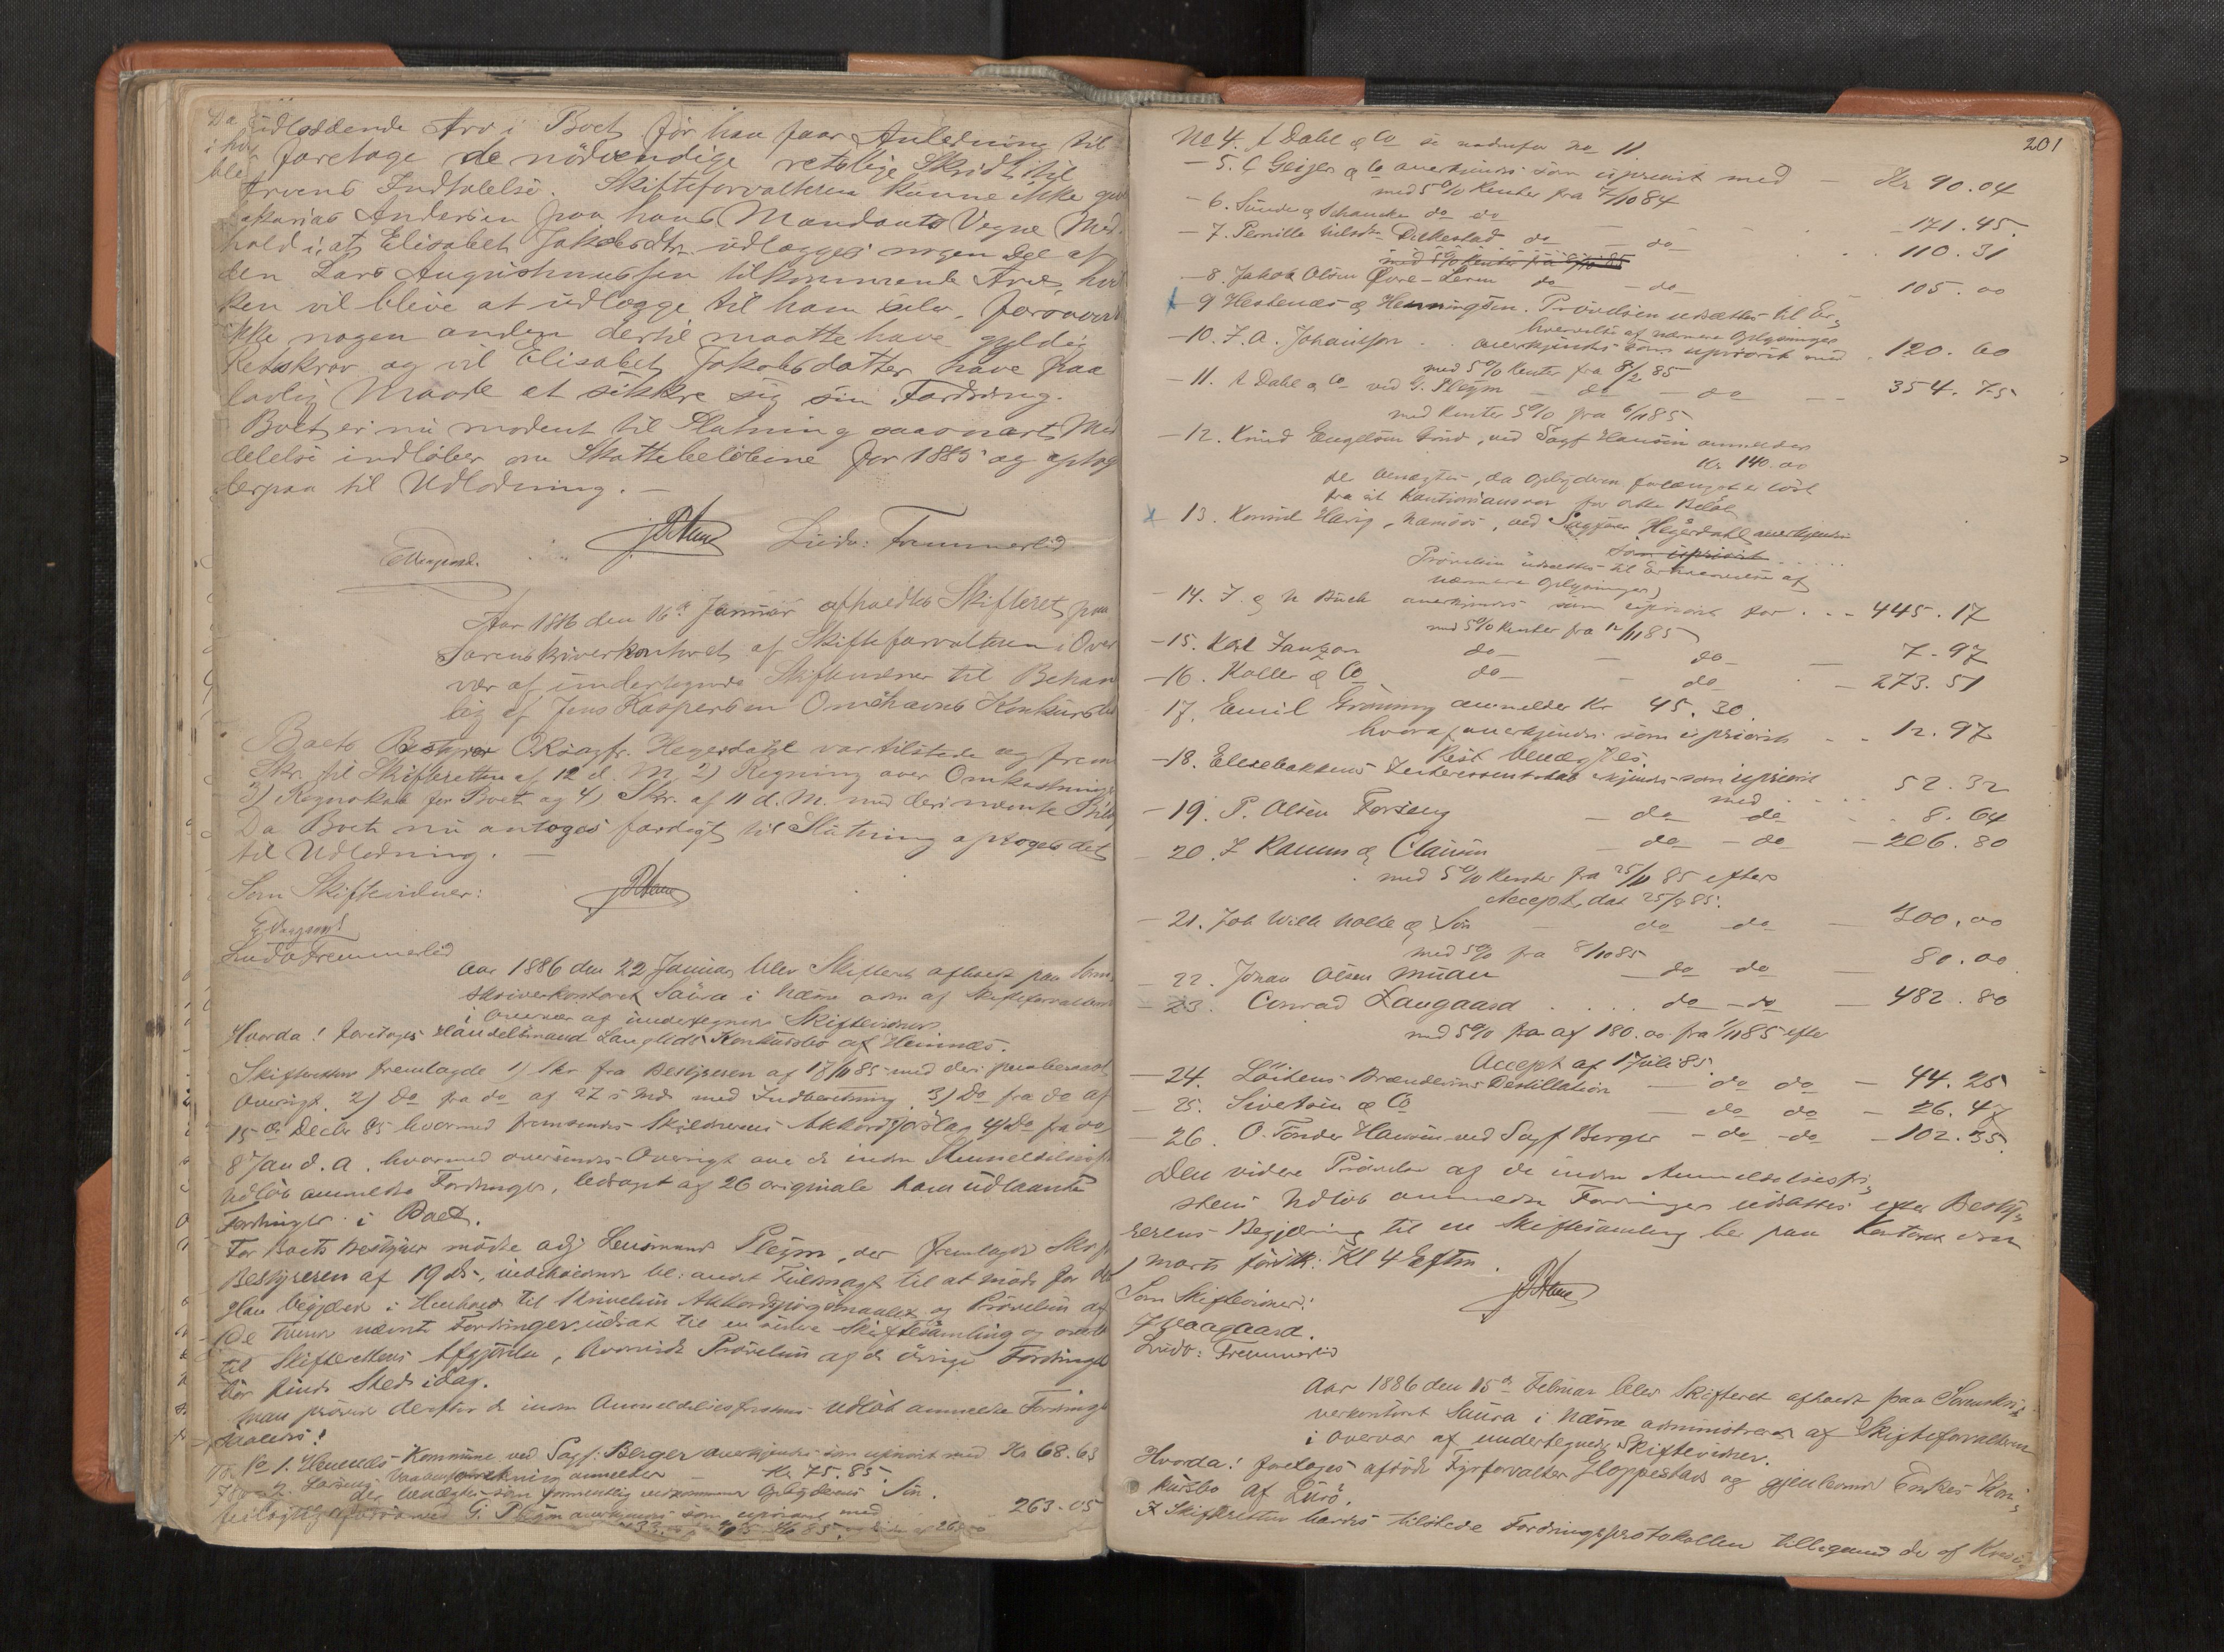 udloddende Arv i Boet før han faar Anledning til
foretage de nödvendige retslige Skridt til
Arvens Indtalelse. Skifteforvalteren kunne ikke
Zakarias Andersen paa hans Mandants Vegne Med
hold i, at Elisabet Jakobsdtr. udlægges nogen Del af
den Lars Augustinussen tilkommende Arv,
ken vil blive at udlægge til ham selv, forsaavidt
ikke nogen anden dertil maatte have gyldig
Retskrav og vil Elisabet Jakobsdatter have paa
lovlig Maade at sikkre sig sin Fordring.
Boet er nu modent til Slutning saasnart Med
delelse indlöber om Skattebelöbene for 1885 og optog
derpaa til Udlodning. —
E Vaagaard. Ludv: Fremmerlid
Aar 1886 den 16de Januar afholdtes Skifteret paa
Sorenskriverkontoret af Skifteforvalteren i Over
vær af undertegnede Skiftevidner til Behand
ling af Jens Kaspersen Konkursbo
Boets Bestyrer ORsagfr. Hegerdahl var tilstede og frem
Skr. til Skifteretten af 12 d. M. 2) Regning over Omkostninger
3) Regnskab for Boet og 4) Skr. af 11 d. M. med deri nævnte Bilag
Da Boet nu antoges færdigt til Slutning optoges det
til Udlodning. —
Som Skiftevidner:
E Vaagaard
Ludv Fremmerlid
Aar 1886 den 22 Januar blev Skifteret afholdt paa Soren
skriverkontoret Saura i Næsne adm af Skifteforvalteren
i Overvær af undertegnede Skiftevidner.
Hvorda! foretoges Handelsmand Langlids Konkursbo af Hemnæs.
Skifteretten fremlagde 1) Skr fra Bestyreren af 17/11 85 med deri paaberaabt
Oversigt. 2) Do fra do af 27 s Md. med Indberetning. 3) Do fra do af
15de Decbr 85 hvormed fremsendes Skyldnerens Akkordforslag 4) Do fra do
8 Jan d. A. hvormed oversendes Oversigt over de inden Anmeldelsesfr
Udlöb anmeldte Fordringer, ledsaget af 26 originale ham udlaante
Fordringer i Boet.
For Boets Bestyrer mödte adj Lensmand Pleym, der fremlagde Skr f
Bestyreren af 19 ds, indeholdende bl: andet Fuldmagt til at möde for
Han begjærede i Henhold til Skrivelsen Akkordspörgsmaalet og Prövelsen af
de nævnte Fordringer udsat til en senere Skiftesamling og
til Skifterettens Afgjörelse, hvorvidt Prövelsen af de övrige Fordringer
bör finde Sted idag.
Man prövede derefter de inden Anmeldelsesfristens Udlöb anmeldte Fordringer
saaledes!
No 1. Hemnæs Kommune ved Sagf: Berger anerkjendes som uprior​it med Kr 68.63
2. anmelder — Kr. 75.85.
der benægtes som formentlig vedkommende Opbyderens Sön.
G. Pleym anerkjendes som uprior​it med 263.05
201
No 4. A Dahl & Co se nedenfor No 11.
— 5. C Geijer & Co anerkjendes som uprior​it med — Kr 90.04
med 5% Renter fra 7/10 84
— 6. Sunde & Schancke do do — 171.45.
— 7. Pernille Dyrkestad do — do — 110.31
med 5% Renter fra 85
— 8. Jakob Olsen Øvre-Leren do — do — 105.00
— 9 Hestenæs & Henningsen. Prövelsen udsættes til Er=
hvervelse af nærmere Oplysninger
— 10. F. A. Johanson . . anerkjendes som uprior​it med . 120.60
med 5% Renter fra 8/2 85
— 11. A Dahl & Co ved G. Pleym — do — do — 354.75
med Renter 5% fra 6/11 85
— 12. Knud Engelsen Grud, ved Sagf Hansen anmeldes
Kr. 140.00
der benægtes, da Opbyderen forlængst er löst
fra sit Kautionsansvar for dette Belöb
— 13. Konrad Havig, Namsos, ved Sagförer Hegerdahl anerkjendes
som uprior​it . . . . .
Prövelsen udsættes til Erhvervelse af
nærmere Oplysninger)
— 14. J. & N Buck anerkjendes som uprior​it for . . — 445.17
med 5% Renter fra 12/11 85
— 15. Karl Janzon do — do — 7.97
— 16. Koller & Co do — do — 273.51
17. Emil Gröning anmelder Kr 45.30.
hvoraf anerkjendes som uprior​it - - 12.97
Rest benægtes.
— 18. Interessentskab erkjendes som uprior​it
med . . . . 52.32
— 19. P. Olsen Forsberg — do do . . 8.64
— 20. J Ramm & Clausen — do — do — 206.80
med 5% Renter fra 25/11 85 efter
Accept, dat 25/8 85.
— 21. Joh Wilh Holte & Sön — do do — 300.00
med 5% fra 8/10 85
— 22. Johan Olsen Muan — do do — 80.00
— 23. Conrad Langaard . . . . do — do — 482.80
med 5% fra af 180.00 fra 1/11 85 efter
Accept af 1 Juli 85.
— 24. Löitens Brænderies Destillation — do do — 44.25
— 25. Sivertsen & Co — do do — 26.47
— 26. O. Tönder Hansen ved Sagf Berger — do — do — 102.35.
Den videre Prövelse af de inden Anmeldelsesfri=
stens Udlöb anmeldte Fordringer udsattes efter Besty=
rerens Begjæring til en Skiftesamling her paa Kontoret den
1 Marts förstk: Kl 4 Eftm.
Som Skiftevidner:
E Vaagaard.
Ludv: Fremmerlid
Aar 1886 den 15de Februar blev Skifteret afholdt paa Sorenskri=
verkontoret Saura i Næsne administreret af Skifteforvalteren
i Overvær af undertegnede Skiftevidner.
Hvorda! foretoges afdöde Fyrforvalter Gloppestad og gjenlevende Enkes Kon=
kursbo af Lurö.
I Skifteretten havdes tilstede Fordringsprotokollen tilligemed de af